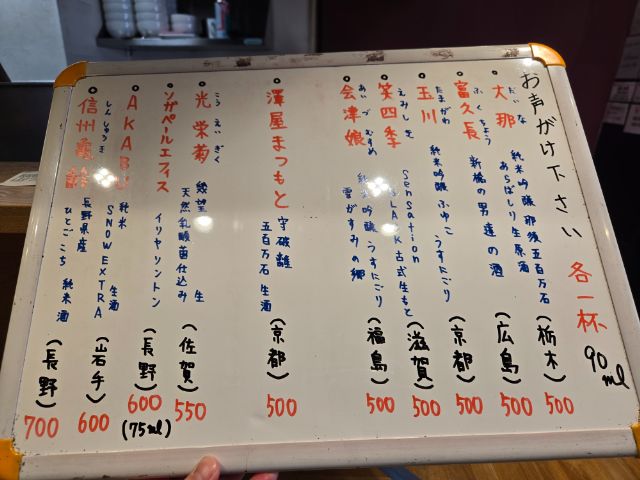 お声がけ下さい
各一杯
90ml
だいな
大那
純米吟醸 那須五百万石
あらばしり生原酒
(栃木)
500
ふくちょう
富久長
新橋の男達の酒
(広島)
500
たまがわ
玉川
純米吟醸 ふゆこ うすにごり
(京都)
500
えみしき
笑四季
Sensation
BLACK 古式生もと
(滋賀)
500
あいづ むすめ
会津娘
純米吟醸 うすにごり
雪がすみの郷
(福島)
500
澤屋まつもと
守破離
五百万石 生酒
(京都)
500
こう えい ぎく
光栄菊
綾望 生
天然乳酸菌仕込み
(佐賀)
550
ソガペールエフィス
イリヤソントン
(長野)
600
(75ml)
AKABU
純米
SNOW EXTRA 生酒
(岩手)
600
しんしゅうき
信州亀齢
長野県産
ひとごこち 純米酒
(長野)
700